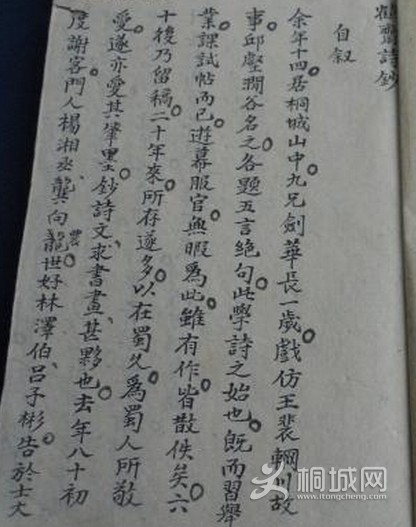 鶴齋詩鈔
自叙
余年十四居桐城山中九兄劍華長一歲戲仿王裴輞川故
事邱壑澗谷名之各題五言絕句此學詩之始也既而習舉
業課試帖而已遊幕服官無暇爲此雖有作皆散佚矣六
十後乃留稿二十年來所存遂多以在蜀久爲蜀人所敬
愛遂亦愛其筆墨鈔詩文求書畫甚夥也去年八十初
度謝客門人楊湘丞、龔向農世好林澤伯、呂子彬告於士大
桐城网
www.itongcheng.cc